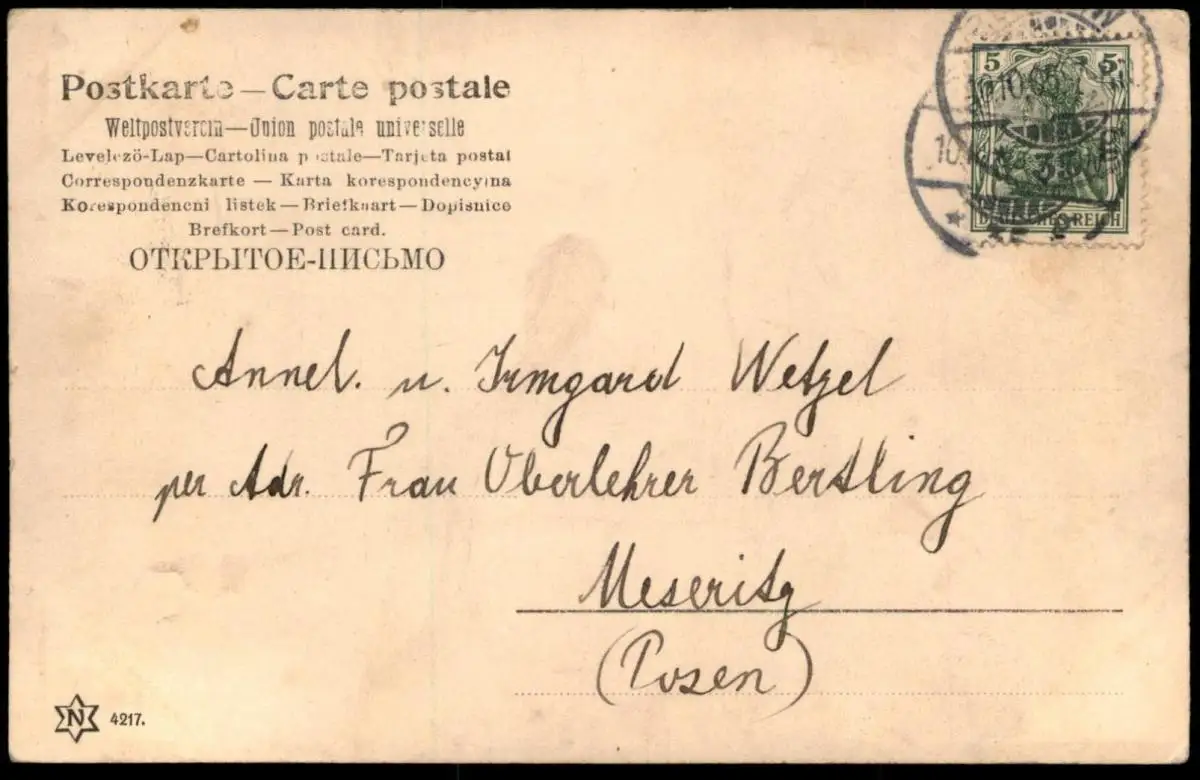 Postkarte — Carte postale
Weltpostverein — Union postale universelle
Levelezö-Lap — Cartolina postale — Tarjeta postal
Correspondenzkarte — Karta korespondencyjna
Korespondencni listek — Briefkaart — Dopisnice
Brefkort — Post card.
ОТКРЫТОЕ-ПИСЬМО
5 5
DEUTSCHES REICH
Annel. u. Irmgard Wetzel
per Adr. Frau Oberlehrer Bertling
Meseritz
(Posen)
N 4217.